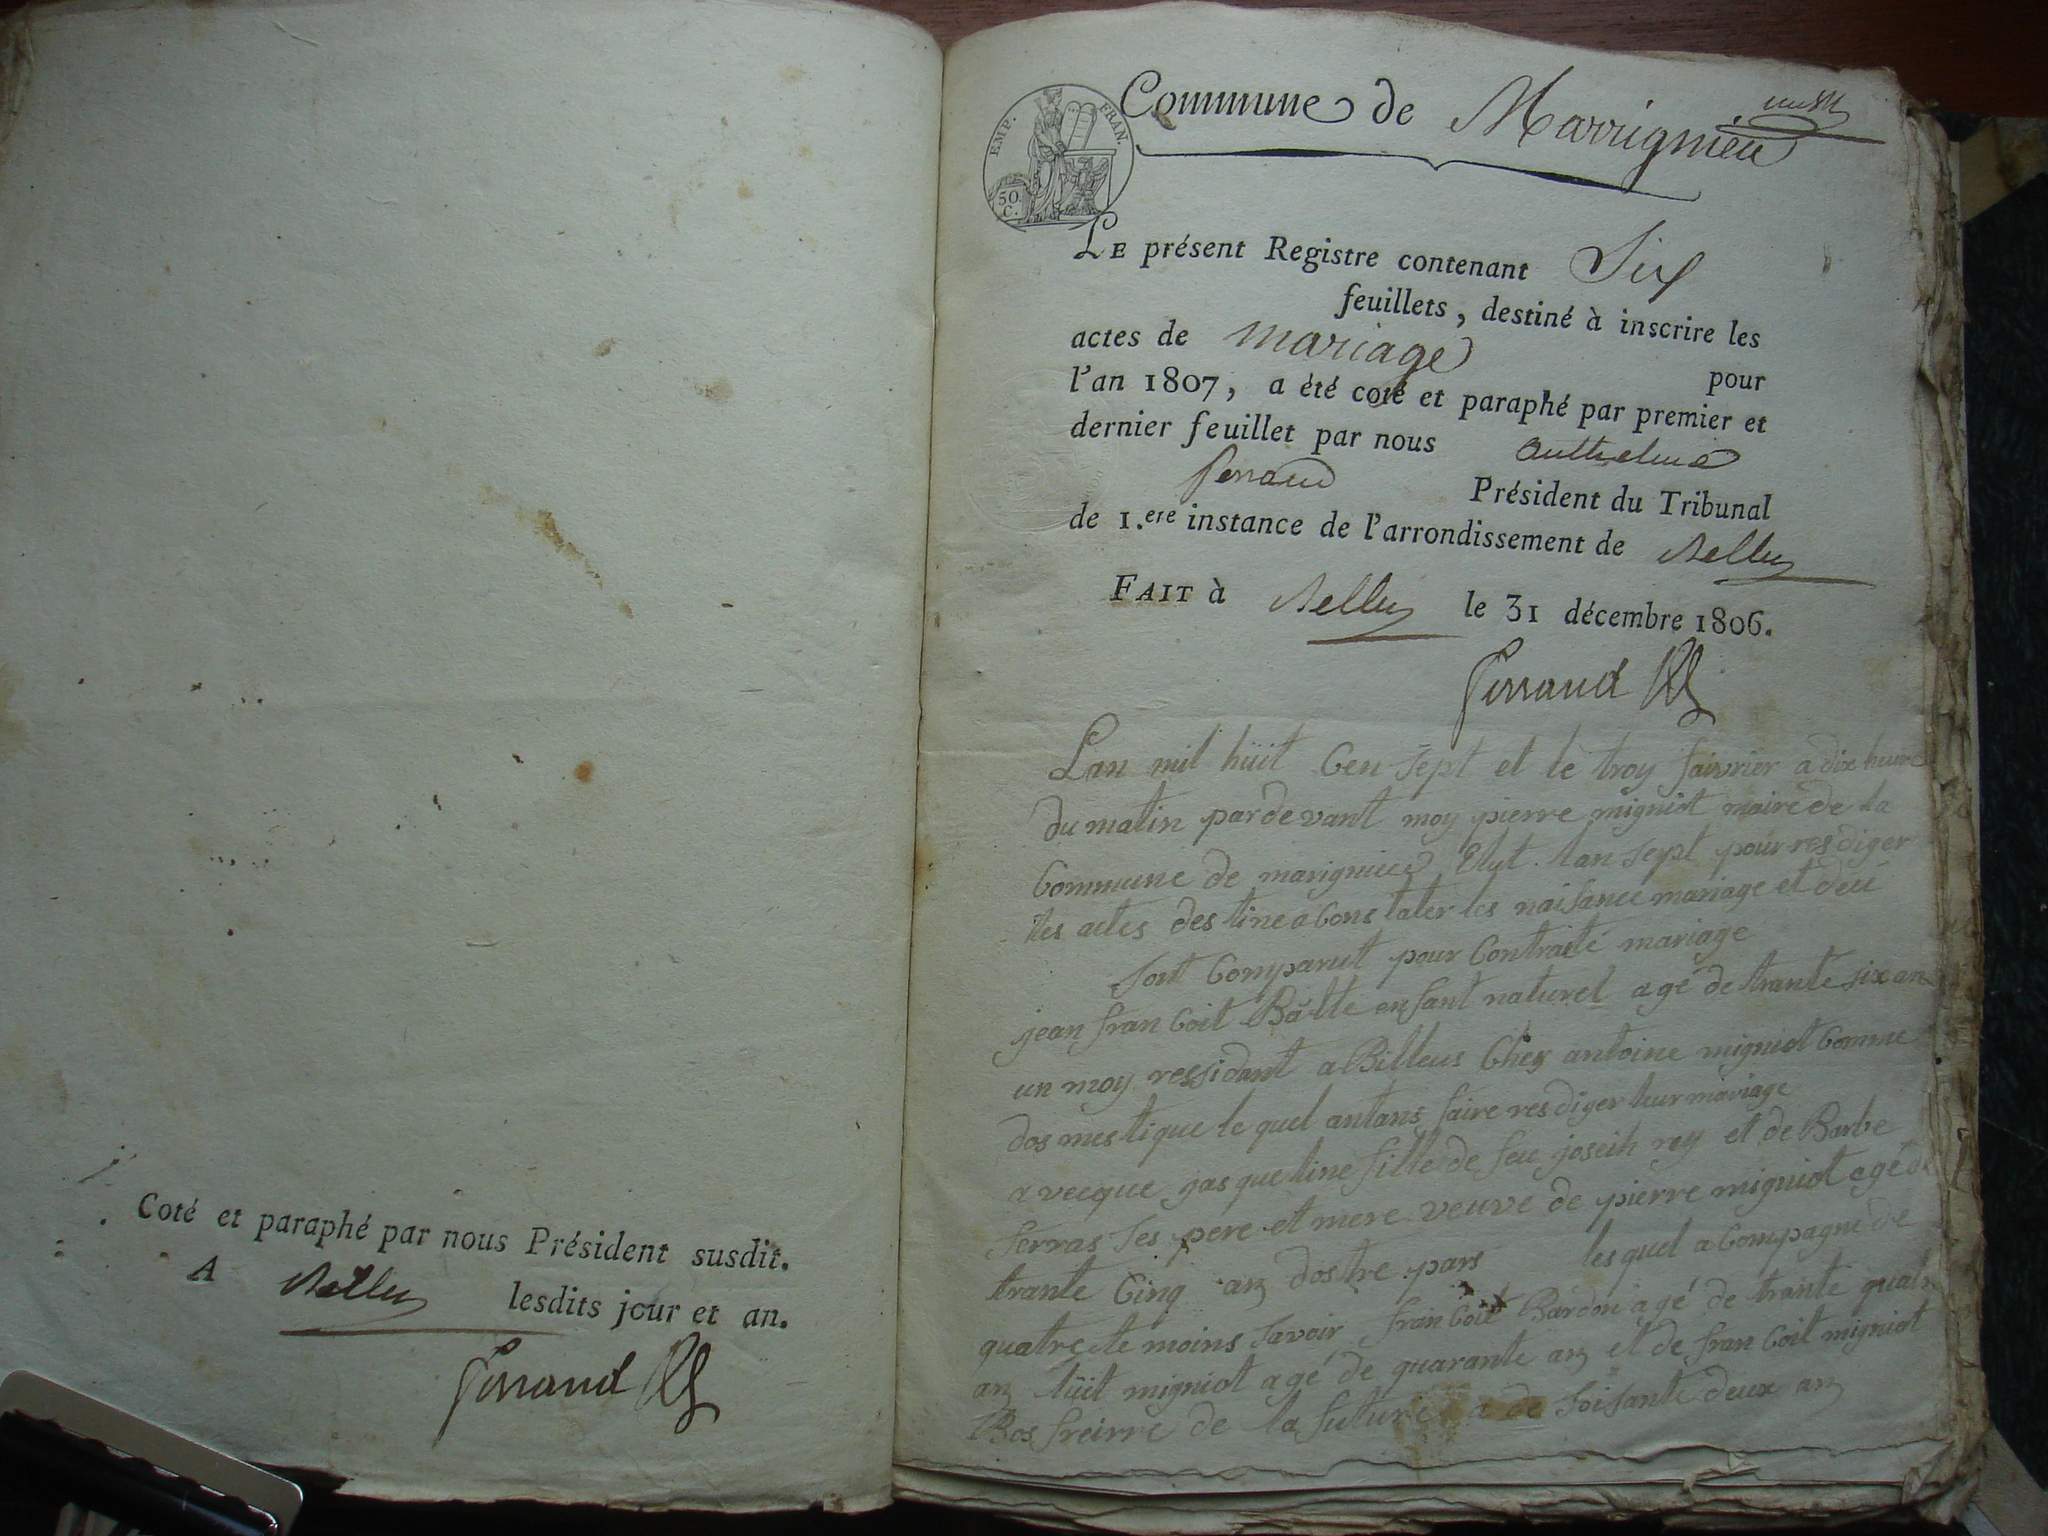 Coté et paraphé par nous Président susdit.
A Belley lesdits jour et an.
Ferrand
EMP. FRAN.
50 C.
Commune de Marrignieu
Le présent Registre contenant Six
feuillets, destiné à inscrire les
actes de mariage pour
l'an 1807, a été coté et paraphé par premier et
dernier feuillet par nous Anthelme
Ferrand Président du Tribunal
de 1.ere instance de l'arrondissement de Belley
FAIT à Belley le 31 décembre 1806.
Ferrand
Lan mil hüit Cen sept et le troy faivrier a dix heure
du matin pardevant moy pierre migniot maire de la
Commune de marignieu Elut lan sept pour resdiger
les actes destine a Constater les naisance mariage et déü
sont Comparut pour Contraité mariage
jean franCoit Balte enfant naturel agé de trante six an
un moy ressidant a Billeus Chez antoine migniot Comme
dosmestique le quel antans faire resdiger leur mariage
avecque jasqueline fille de feu joseih rey et de Barbe
ferras ses pere et mere veuve de pierre migniot agé de
trante Cinq an dostre pars lesquel aCompagné de
quatre te moins savoir franCoit Baron agé de trante quatre
an lüit migniot agé de quarante an et de franCoit migniot
Bos freirre de la future a de soisante deux an